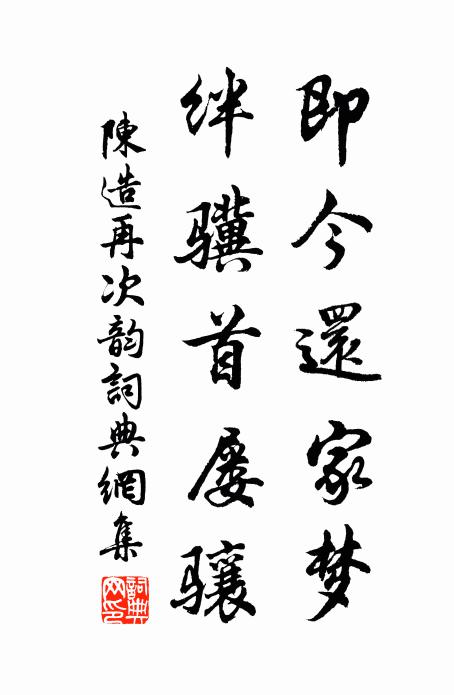 即今還家梦
绊骥首屡骧
陳造再次韵詞典網集
詞典网印